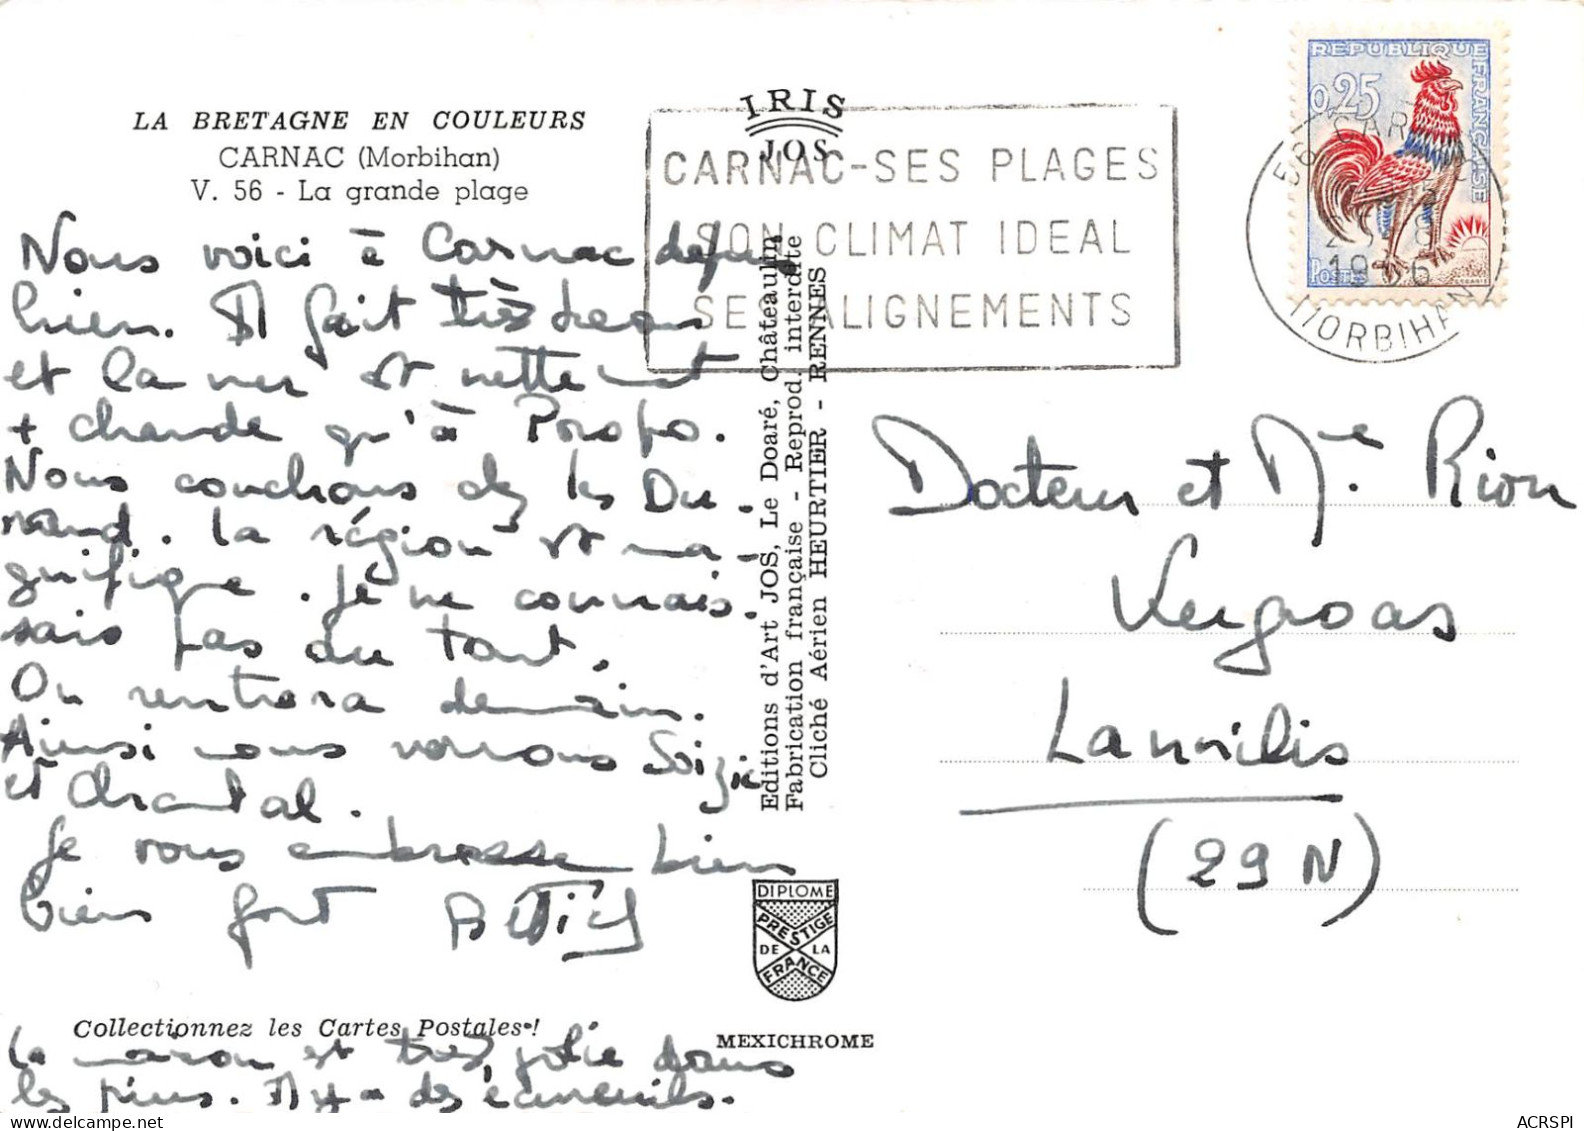 LA BRETAGNE EN COULEURS
CARNAC (Morbihan)
V. 56 - La grande plage
Nous voici à Carnac depuis
hier. Il fait très beau
et la mer est nettement
+ chaude qu'à Porspo.
Nous couchons chez les Du-
rand. La région est ma-
gnifique. Je ne connais-
sais pas du tout.
On rentrera demain.
Ainsi nous verrons Soizic
et Chantal.
Je vous embrasse bien
bien fort
Collectionnez les Cartes Postales !
La maison est très jolie dans
les pins. Il y a des écureuils.
IRIS
JOS
Editions d'Art JOS, Le Doaré, Châteaulin
Fabrication française - Reprod. interdite
Cliché Aérien HEURTIER - RENNES
DIPLOME
PRESTIGE
DE LA
FRANCE
MEXICHROME
CARNAC-SES PLAGES
SON CLIMAT IDEAL
SES ALIGNEMENTS
REPUBLIQUE FRANÇAISE
0,25
POSTES
56 CARNAC
MORBIHAN
Docteur et Me Riou
Kergroas
Lannilis
(29 N)
ACRSPI